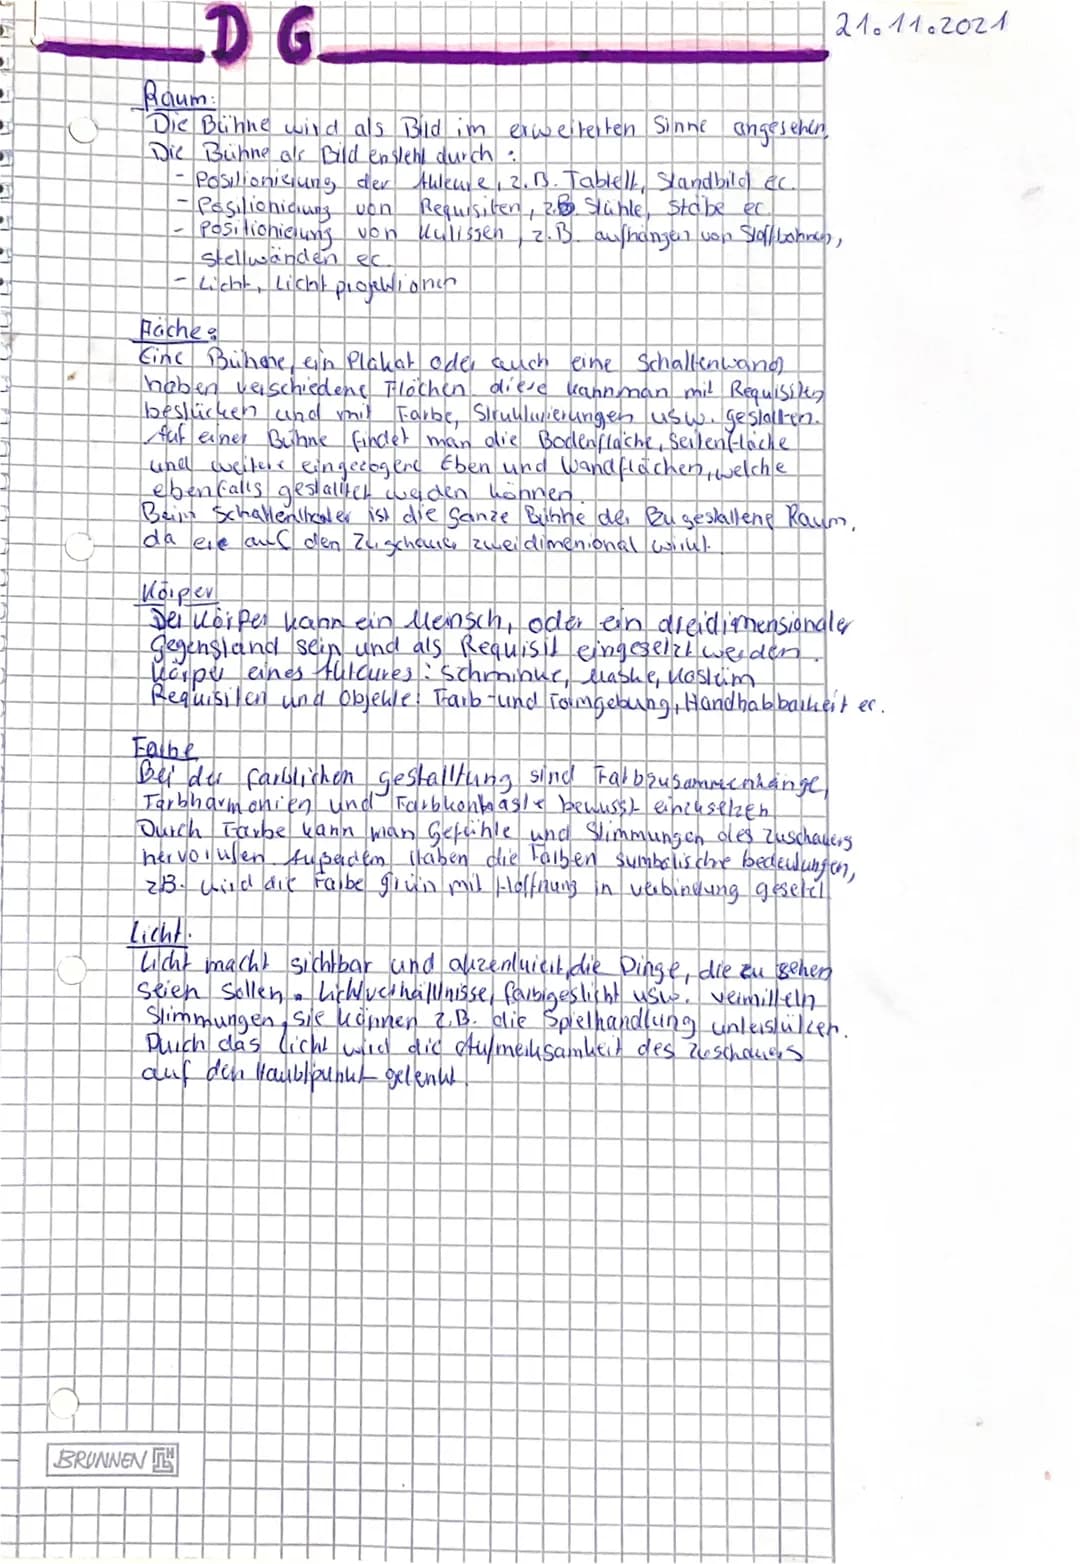 D G
21.11.2021
Raum:
Die Bühne wird als Bild im erweiterten Sinne angesehen
Die Bühne als Bild ensteht durch :
- Positionierung der Auteure, z.B. Tablett, Standbild ec.
- Positionierung von Requisiten, z.B. Stühle, Stäbe ec.
- Positionierung von Kulissen, z.B. aufhängen von Stoffbahnen,
stellwänden ec.
- Licht, Licht projektionen
Fläche:
Eine Bühne, ein Plakat oder auch eine Schattenwand
haben verschiedene Flächen diese kann man mit Requisiten
bestücken und mit Farbe, Strukturierungen usw. gestalten.
Auf einer Bühne findet man die Bodenfläche, Seitenfläche
und weitere eingezogene Eben und Wandflächen, welche
ebenfalls gestaltet werden können.
Beim Schattentheater ist die ganze Bühne der zu gestaltene Raum,
da sie auf den Zuschauer zweidimenional wirkt.
Körper
Der Körper kann ein Mensch, oder ein dreidimensionaler
Gegenstand sein und als Requisit eingesetzt werden.
Körper eines Auteures: Schminke, Maske, Kostüm
Requisiten und Objekte: Farb- und Formgebung, Handhabbarkeit ec.
Farbe
Bei der farblichen gestalltung sind Farbzusammenhänge,
Farbharmonien und Farbkontraste bewusst einzusetzen
Durch Farbe kann man Gefühle und Stimmungen des Zuschauers
hervorrufen. Außerdem haben die Farben symbolische bedeutungen,
z.B. wird die Farbe grün mit Hoffnung in verbindung gesetzt
Licht.
Licht macht sichtbar und die Dinge, die zu sehen
seien sollen. Lichtverhälltnisse, farbigeslicht usw. vermitteln
Stimmungen, sie können z.B. die Spielhandlung unterstützen.
Durch das licht wird die Aufmerksamkeit des Zuschauers
auf den Haubtpunkt gelenkt.
BRUNNEN